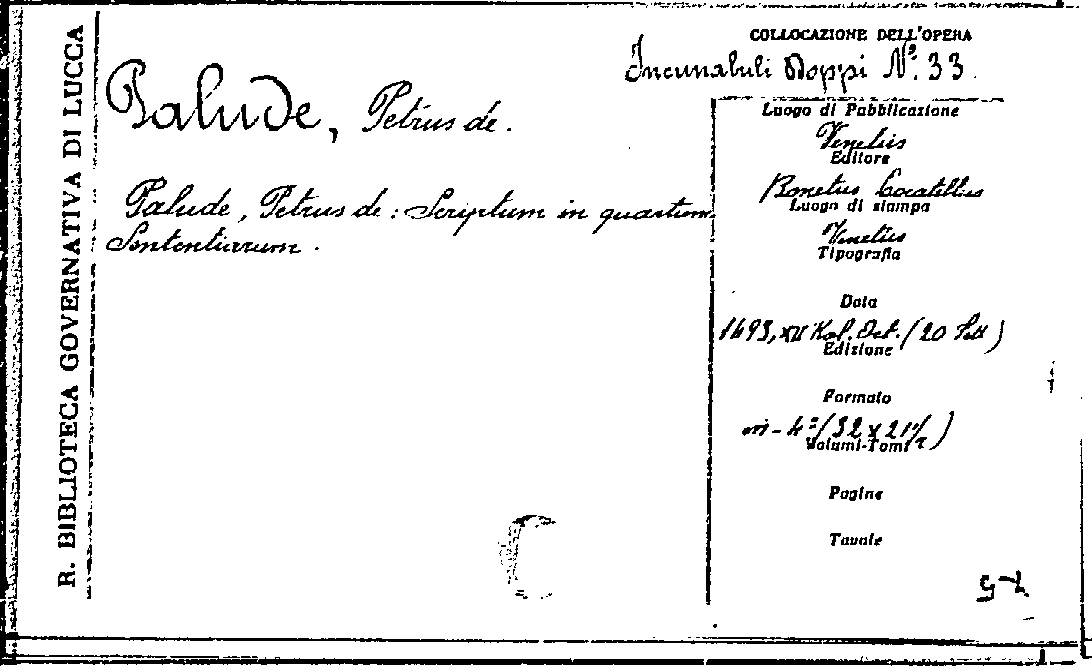 R. BIBLIOTECA GOVERNATIVA DI LUCCA
COLLOCAZIONE DELL'OPERA
Incunabuli Doppi N.º 33.
Palude, Petrus de.
Palude, Petrus de: Scriptum in quartum
Sententiarum.
Luogo di Pubblicazione
Venetiis
Editore
Bonetus Locatellus
Luogo di stampa
Venetiis
Tipografia
Data
1493, XII Kal. Oct. (20 Sett)
Edizione
Formato
in-4º (32 x 21 1/2)
Volumi-Tomi
Pagine
Tavole
C